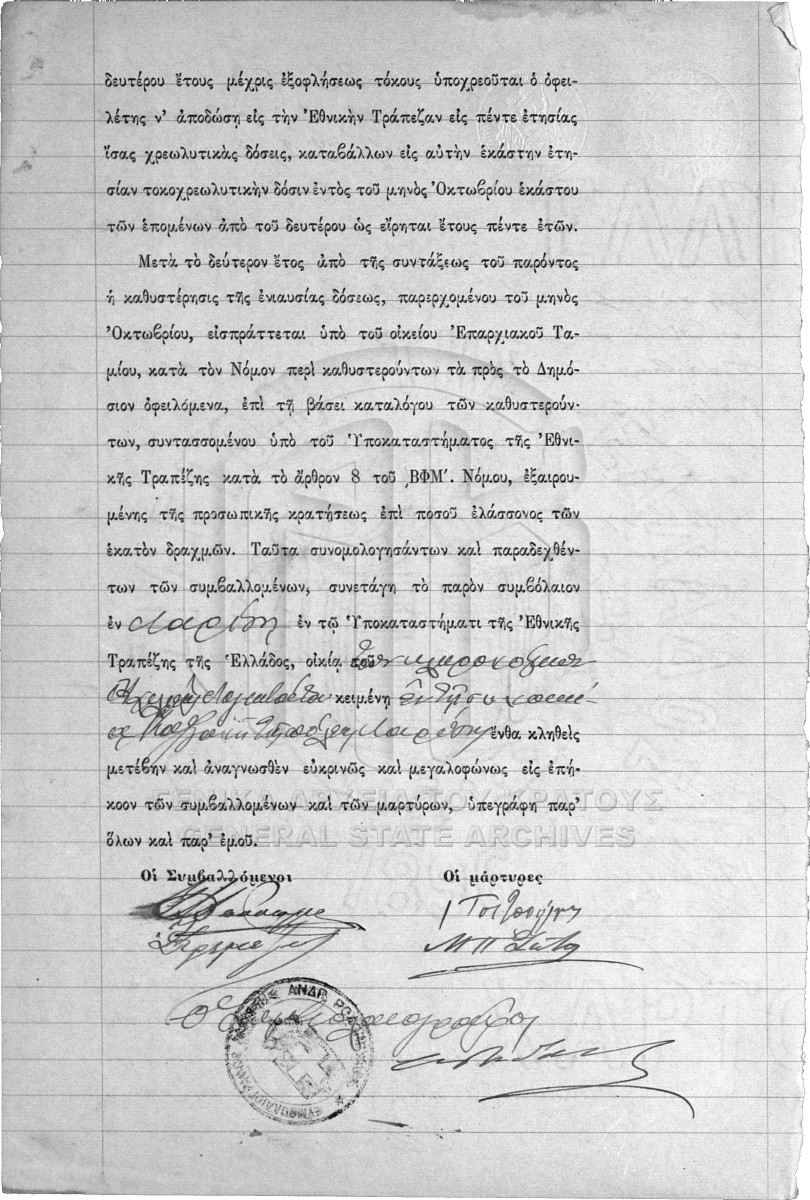 δευτέρου ἔτους μέχρις ἐξοφλήσεως τόκους ὑποχρεοῦται ὁ ὀφει-
λέτης ν’ ἀποδώσῃ εἰς τὴν Ἐθνικὴν Τράπεζαν εἰς πέντε ἐτησίας
ἴσας χρεωλυτικὰς δόσεις, καταβάλλων εἰς αὐτὴν ἑκάστην ἐτη-
σίαν τοκοχρεωλυτικὴν δόσιν ἐντὸς τοῦ μηνὸς Ὀκτωβρίου ἑκάστου
τῶν ἑπομένων ἀπὸ τοῦ δευτέρου ὡς εἴρηται ἔτους πέντε ἐτῶν.
Μετὰ τὸ δεύτερον ἔτος ἀπὸ τῆς συντάξεως τοῦ παρόντος
ἡ καθυστέρησις τῆς ἐνιαυσίας δόσεως, παρερχομένου τοῦ μηνὸς
Ὀκτωβρίου, εἰσπράττεται ὑπὸ τοῦ οἰκείου Ἐπαρχιακοῦ Τα-
μίου, κατὰ τὸν Νόμον περὶ καθυστερούντων τὰ πρὸς τὸ Δημό-
σιον ὀφειλόμενα, ἐπὶ τῇ βάσει καταλόγου τῶν καθυστερούν-
των, συντασσομένου ὑπὸ τοῦ Ὑποκαταστήματος τῆς Ἐθνι-
κῆς Τραπέζης κατὰ τὸ ἄρθρον 8 τοῦ ͵ΒΦΜ΄. Νόμου, ἐξαιρου-
μένης τῆς προσωπικῆς κρατήσεως ἐπὶ ποσοῦ ἐλάσσονος τῶν
ἑκατὸν δραχμῶν. Ταῦτα συνομολογησάντων καὶ παραδεχθέν-
των τῶν συμβαλλομένων, συνετάγη τὸ παρὸν συμβόλαιον
ἐν Λαρίσῃ ἐν τῷ Ὑποκαταστήματι τῆς Ἐθνικῆς
Τραπέζης τῆς Ἑλλάδος, οἰκίᾳ τῶν κληρονόμων
κειμένῃ
Λαρίσης ἔνθα κληθεὶς
μετέβην καὶ ἀναγνωσθὲν εὐκρινῶς καὶ μεγαλοφώνως εἰς ἐπή-
κοον τῶν συμβαλλομένων καὶ τῶν μαρτύρων, ὑπεγράφη παρ’
ὅλων καὶ παρ’ ἐμοῦ.
ΓΕΝΙΚΑ ΑΡΧΕΙΑ ΤΟΥ ΚΡΑΤΟΥΣ
GENERAL STATE ARCHIVES
Οἱ Συμβαλλόμενοι Οἱ μάρτυρες
Ὁ Συμβολαιογράφος